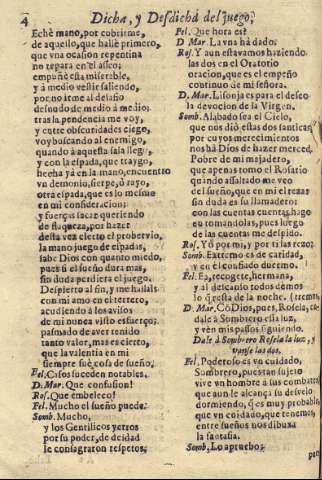 4 Dicha, y Desdicha del juego,
Echè mano, por cubrirme,
de aquello, que hallè primero,
que vna ocasion repentina
no repara en el asseo:
empuñè esta miserable,
y à medio vestir saliendo,
por no irme al desafio
desnudo de medio à medio;
tras la pendencia me voy,
y entre obscuridades ciego,
voy buscando al enemigo,
quando à aquesta sala llego
y con la espada, que traygo,
hecha yà en la mano, encuentro
vn demonio, sierpe, ò rayo
otra espada, que es lo mesmo
en mi consideracion;
y fuerças sacar queriendo
de flaqueza, por hazer
desta vez cierto el proberbio,
la mano juego de espadas,
sabe Dios con quanto miedo,
pues si el sueño dura mas,
sin duda perdiera el juego.
Despierto al fin, y me hallais
con mi amo en el terrero,
acudiendo à los avisos
de mi nunca visto esfuerço:
pasmado de aver tenido
tanto valor, mas es cierto,
que la valentia en mi
siempre fue cosa de sueño.
Fel. Casos suceden notables.
D. Mar. Que confusion!
Ros. Que embeleco!
Fel. Mucho el sueño puede.
Somb. Mucho,
y los Gentilicos yerros
por su poder, de deidad
le consagraron respetos;
Fel. Que hora es?
D Mar. La vna hà dado.
Ros. Y aun estavamos haziendo
las dos en el Oratorio
oracion, que es el empeño
continuo de mi señora.
D. Mar. Lisonja es para el deseo
la devocion de la Virgen.
Somb. Alabado sea el Cielo,
que nos diò estas dos santicas,
por cuyos merecimientos
nos hà Dios de hazer merced.
Pobre de mi majadero,
que apenas tomo el Rosario
quando assaltado me veo
del sueño, que en mi el rezar
sin duda es su llamadero:
con las cuentas cuentas hago
en tomandolas, pues luego
de las cuentas me despido.
Ros. Yo por mi, y por ti las rezo.
Somb. Extremo es de caridad,
y en ti confiado duermo.
Fel. Ea, recogete, hermana,
y al descanso todos demos
lo q̃ resta de la noche.
D. Mar. Cõ Dios, pues, Rosela,
dale à Sombrero esta luz,
y vèn mis passos siguiendo.
Dale à Sombrero Rosela la luz, y
vanse las dos.
Fel. Poderoso es vn cuidado,
Sombrero, pues tan sujeto
vive vn hombre à sus combates
que aun le alcança su desvelo
dormiendo, q̃ es muy probable,
que vn cuidado, que tenemos,
entre sueños nos dibuxa
la fantasia.
Somb. Lo apruebo;